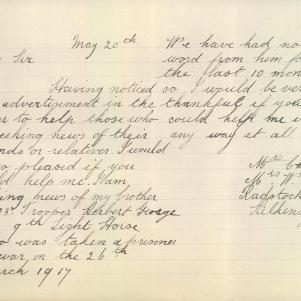 May 20th
Sir
Having noticed
advertisement in the
er to help those who
eeking news of their
nds or relatives I would
so pleased if you
ld help me. I am
ing news of my brother
Trooper Herbert George
9th Light Horse
o was taken a prisoner
war, on the 26th
arch 1917
We have had no
word from him fo
the last 10 mon
so I would be ver
thankful if you
could help me i
any way at all
Mrs
Mrs W.
Radstock